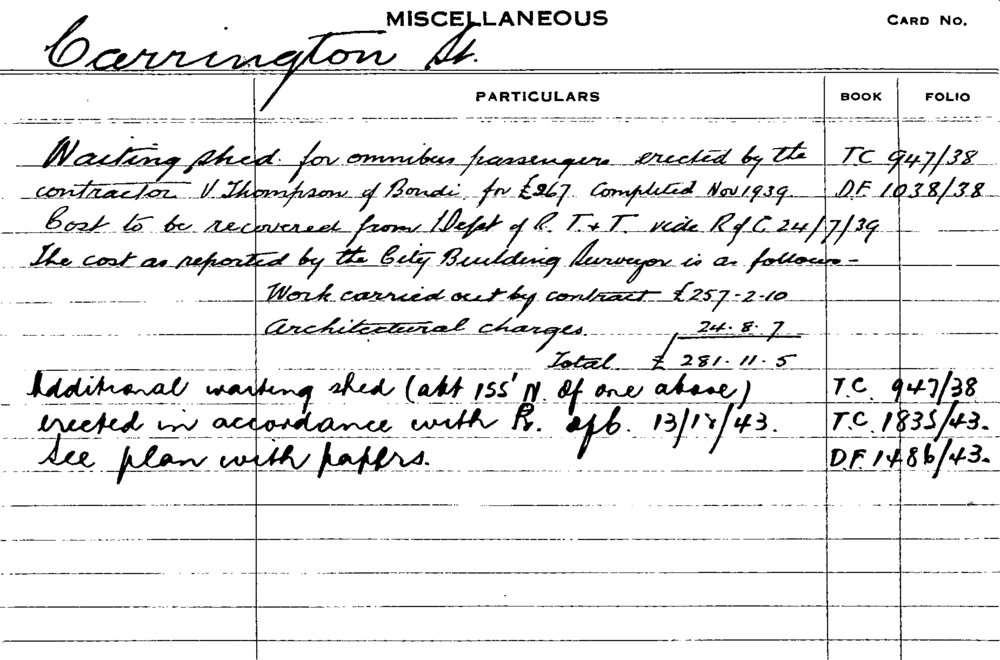 MISCELLANEOUS
CARD NO.
Carrington St.
PARTICULARS BOOK FOLIO
Waiting shed for omnibus passengers erected by the T.C. 947/38
contractor V Thompson of Bondi for £267. Completed Nov 1939 D.F. 1038/38
Cost to be recovered from Dept of R. T. & T. vide R of C 24/7/39
The cost as reported by the City Building Surveyor is as follows –
Work carried out by contract £257-2-10
Architectural charges 24.8.7
Total £ 281.11.5
Additional waiting shed (abt 155' N. of one above) T.C. 947/38
erected in accordance with R. of C. 13/12/43. T.C. 1835/43.
See plan with papers. D.F. 1486/43.